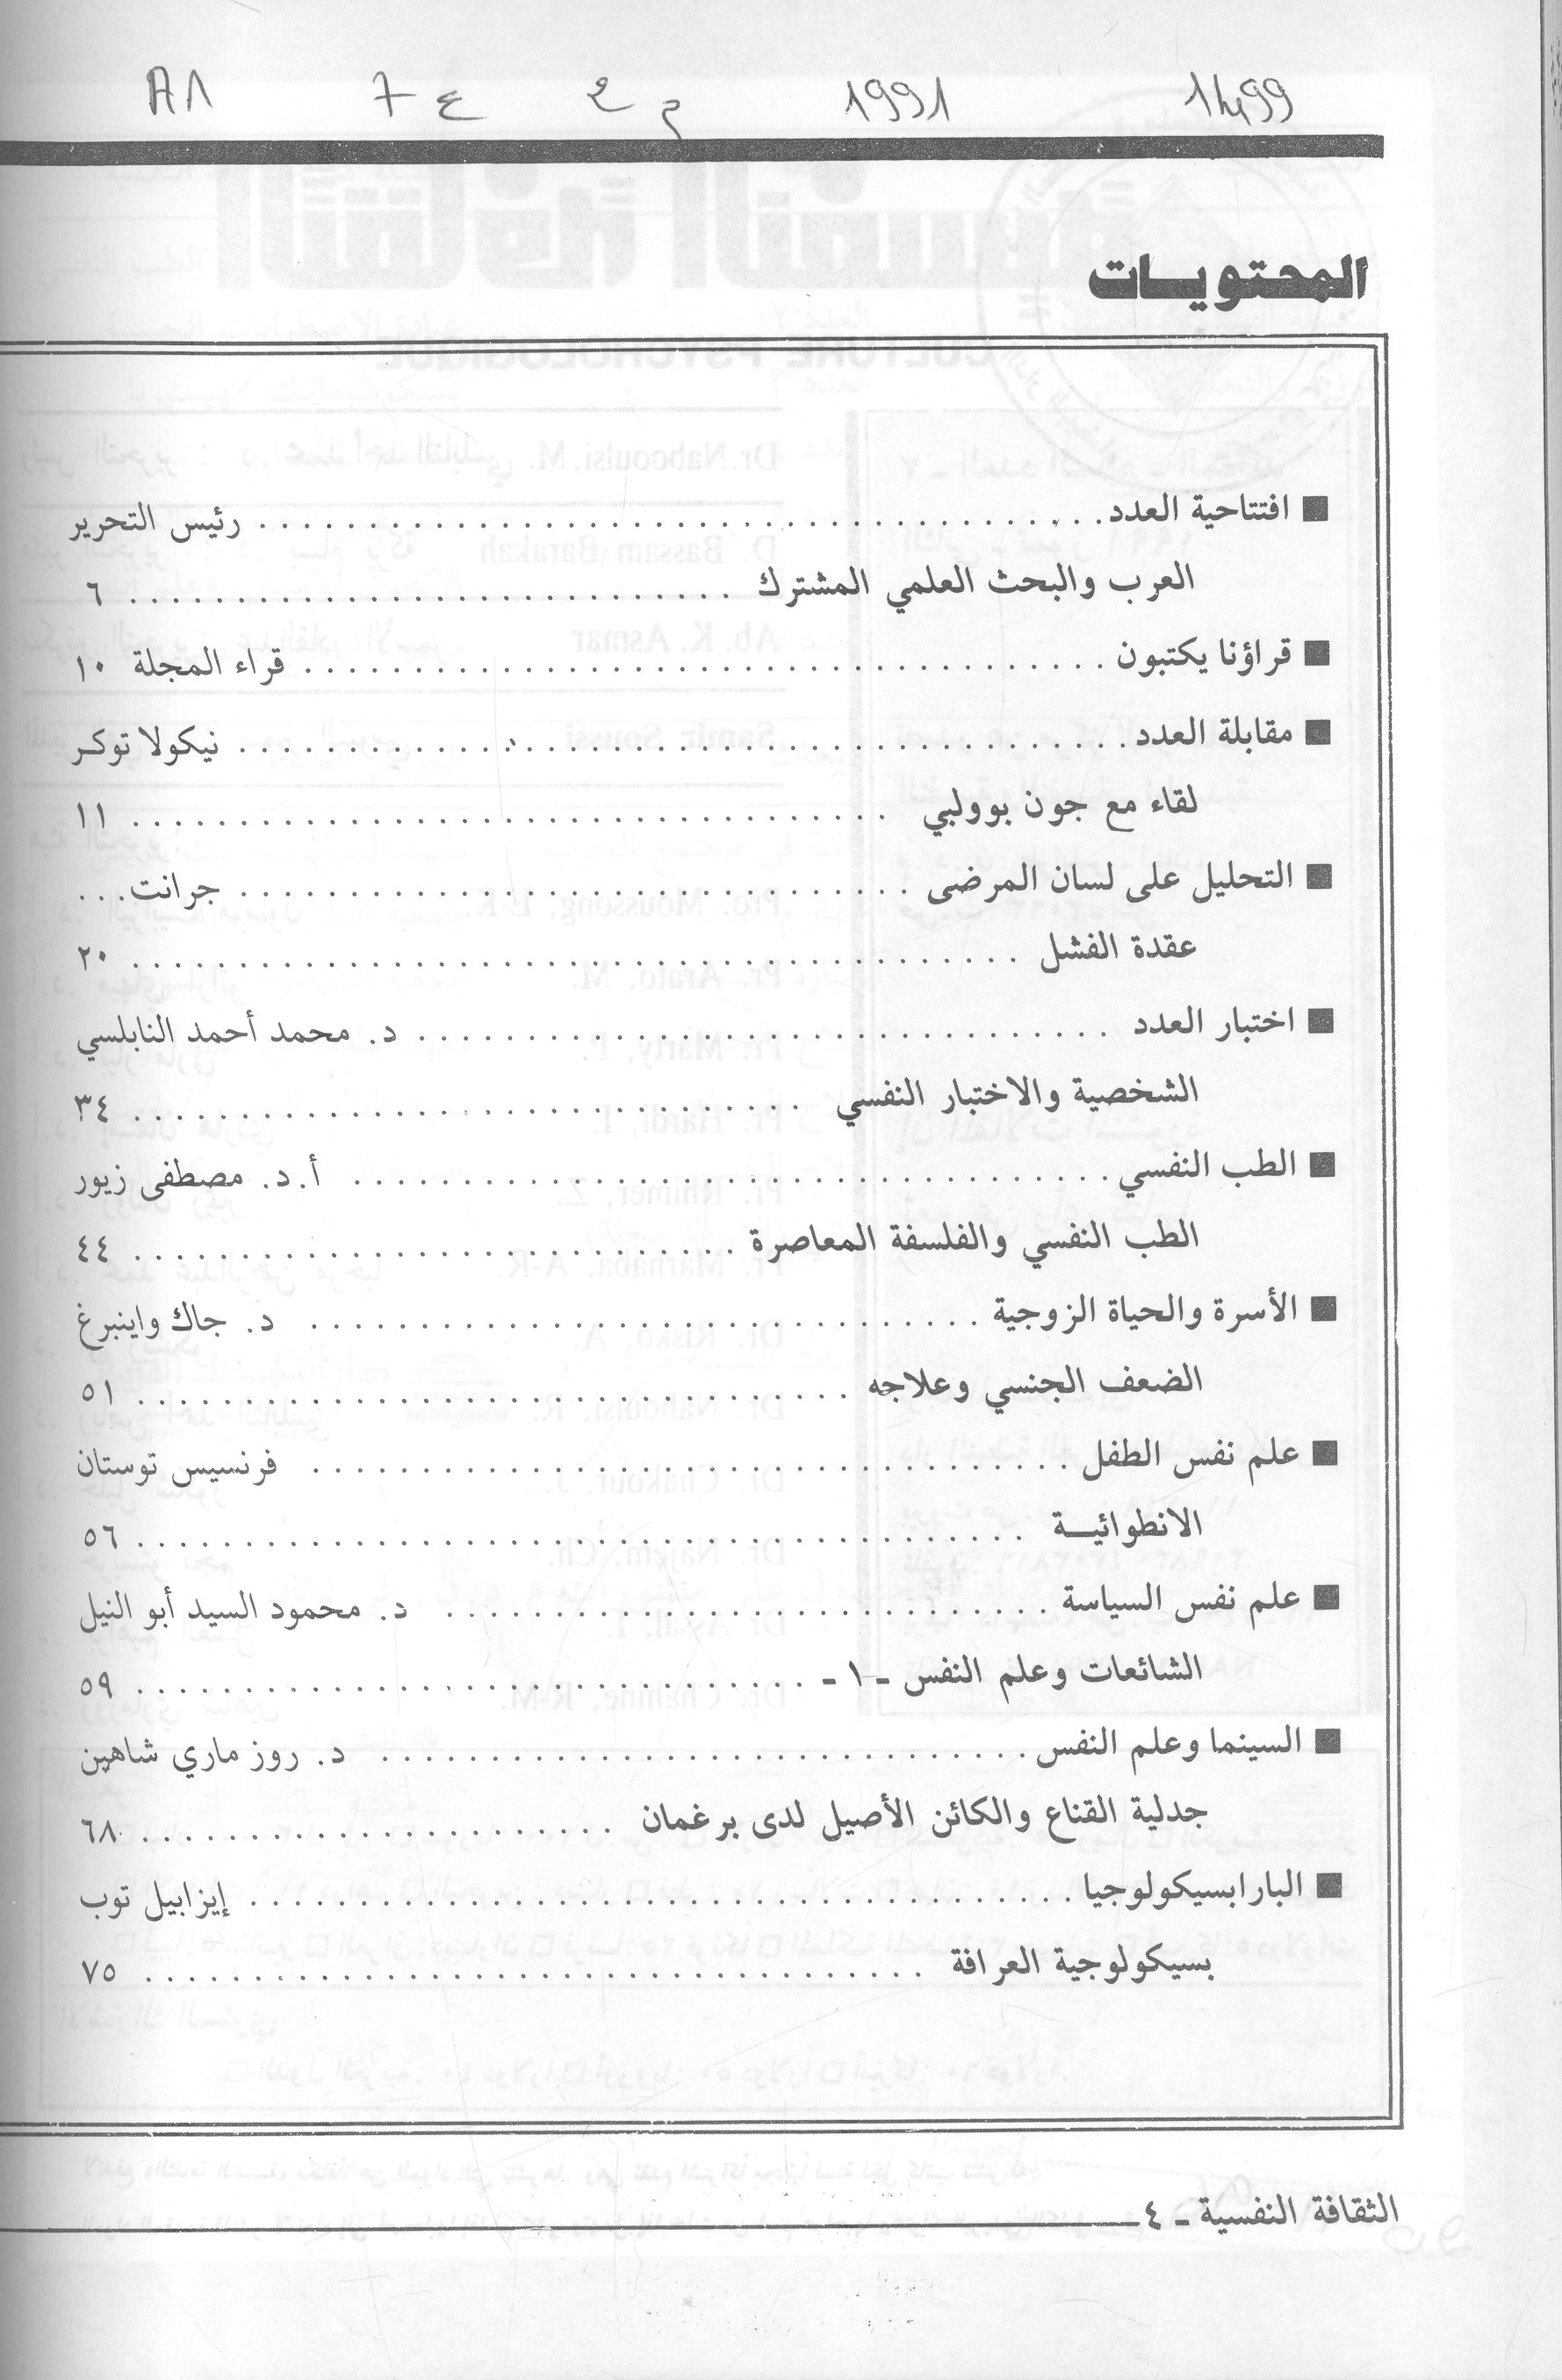 1991
المحتويــات
■ افتتاحية العدد ........ رئيس التحرير
العرب والبحث العلمي المشترك ........ ٦
■ قراؤنا يكتبون ........ قراء المجلة ١٠
■ مقابلة العدد ........ نيكولا توكـر
لقاء مع جون بوولبي ........ ١١
■ التحليل على لسان المرضى ........ جرانت...
عقدة الفشل ........ ٢٠
■ اختبار العدد ........ د. محمد أحمد النابلسي
الشخصية والاختبار النفسي ........ ٣٤
■ الطب النفسي ........ أ.د. مصطفى زيور
الطب النفسي والفلسفة المعاصرة ........ ٤٤
■ الأسرة والحياة الزوجية ........ د. جاك واينبرغ
الضعف الجنسي وعلاجه ........ ٥١
■ علم نفس الطفل ........ فرنسيس توستان
الانطوائيــة ........ ٥٦
■ علم نفس السياسة ........ د. محمود السيد أبو النيل
الشائعات وعلم النفس - ١ - ........ ٥٩
■ السينما وعلم النفس ........ د. روز ماري شاهين
جدلية القناع والكائن الأصيل لدى برغمان ........ ٦٨
■ البارابسيكولوجيا ........ إيزابيل توب
بسيكولوجية العرافة ........ ٧٥
الثقافة النفسية - ٤